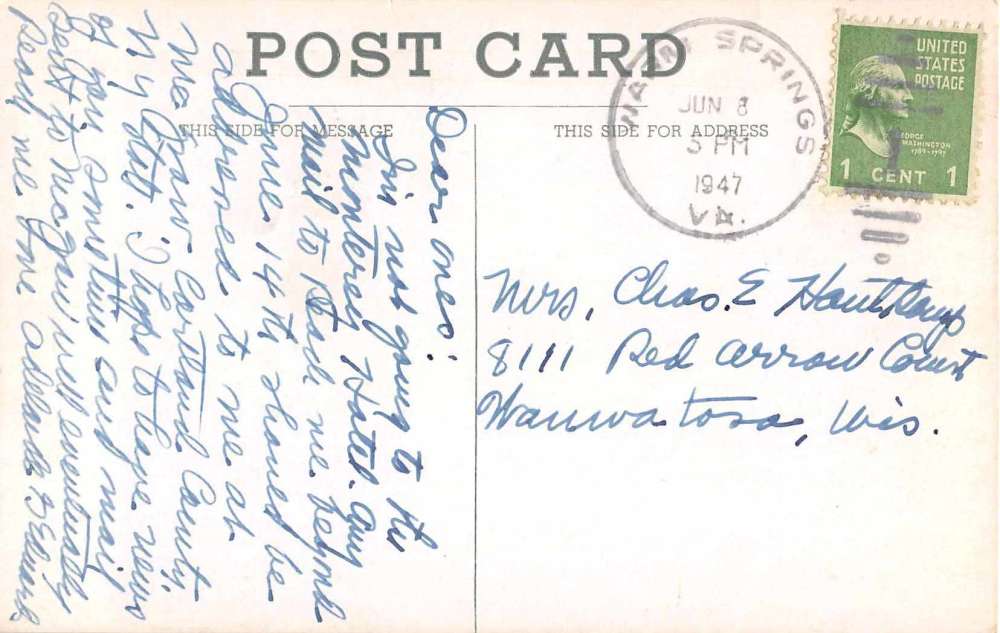 POST CARD
THIS SIDE FOR MESSAGE
THIS SIDE FOR ADDRESS
WARM SPRINGS
JUN 8
5 PM
1947
VA.
UNITED
STATES
POSTAGE
GEORGE
WASHINGTON
1789-1797
1 CENT 1
Dear ones:
I'm not going to the
Monterey Hotel. Any
mail to reach me beyond
June 14th should be
addressed to me at
McGraw Cortland County,
N.Y. State. I hope to have news
of you sometime and mail
sent to McGraw will eventually
reach me. Love
Mrs. Chas. E
8111 Red Arrow Court
Wauwatosa, Wis.